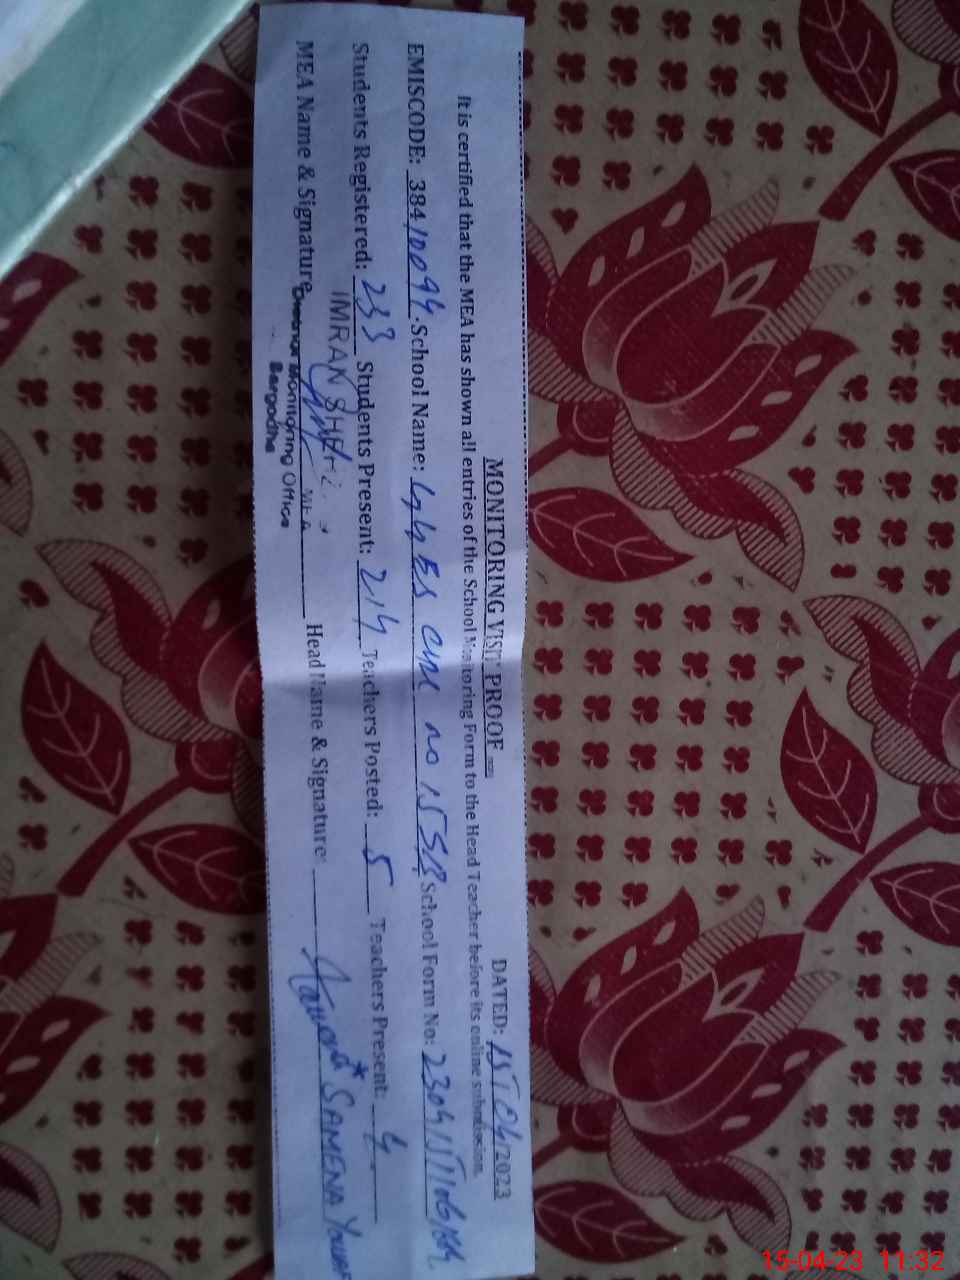 MONITORING VISIT PROOF
DATED: 15-04/2023
It is certified that the MEA has shown all entries of the School Monitoring Form to the Head Teacher before its online submission.
EMISCODE: 38410094 School Name: ES no 15 SB School Form No:
Students Registered: 233 Students Present: 214 Teachers Posted: 5 Teachers Present: 4
MEA Name & Signature Head Name & Signature: SAMENA
IMRAN
MEA
Monitoring Office
Sargodha
15-04-23 11:32